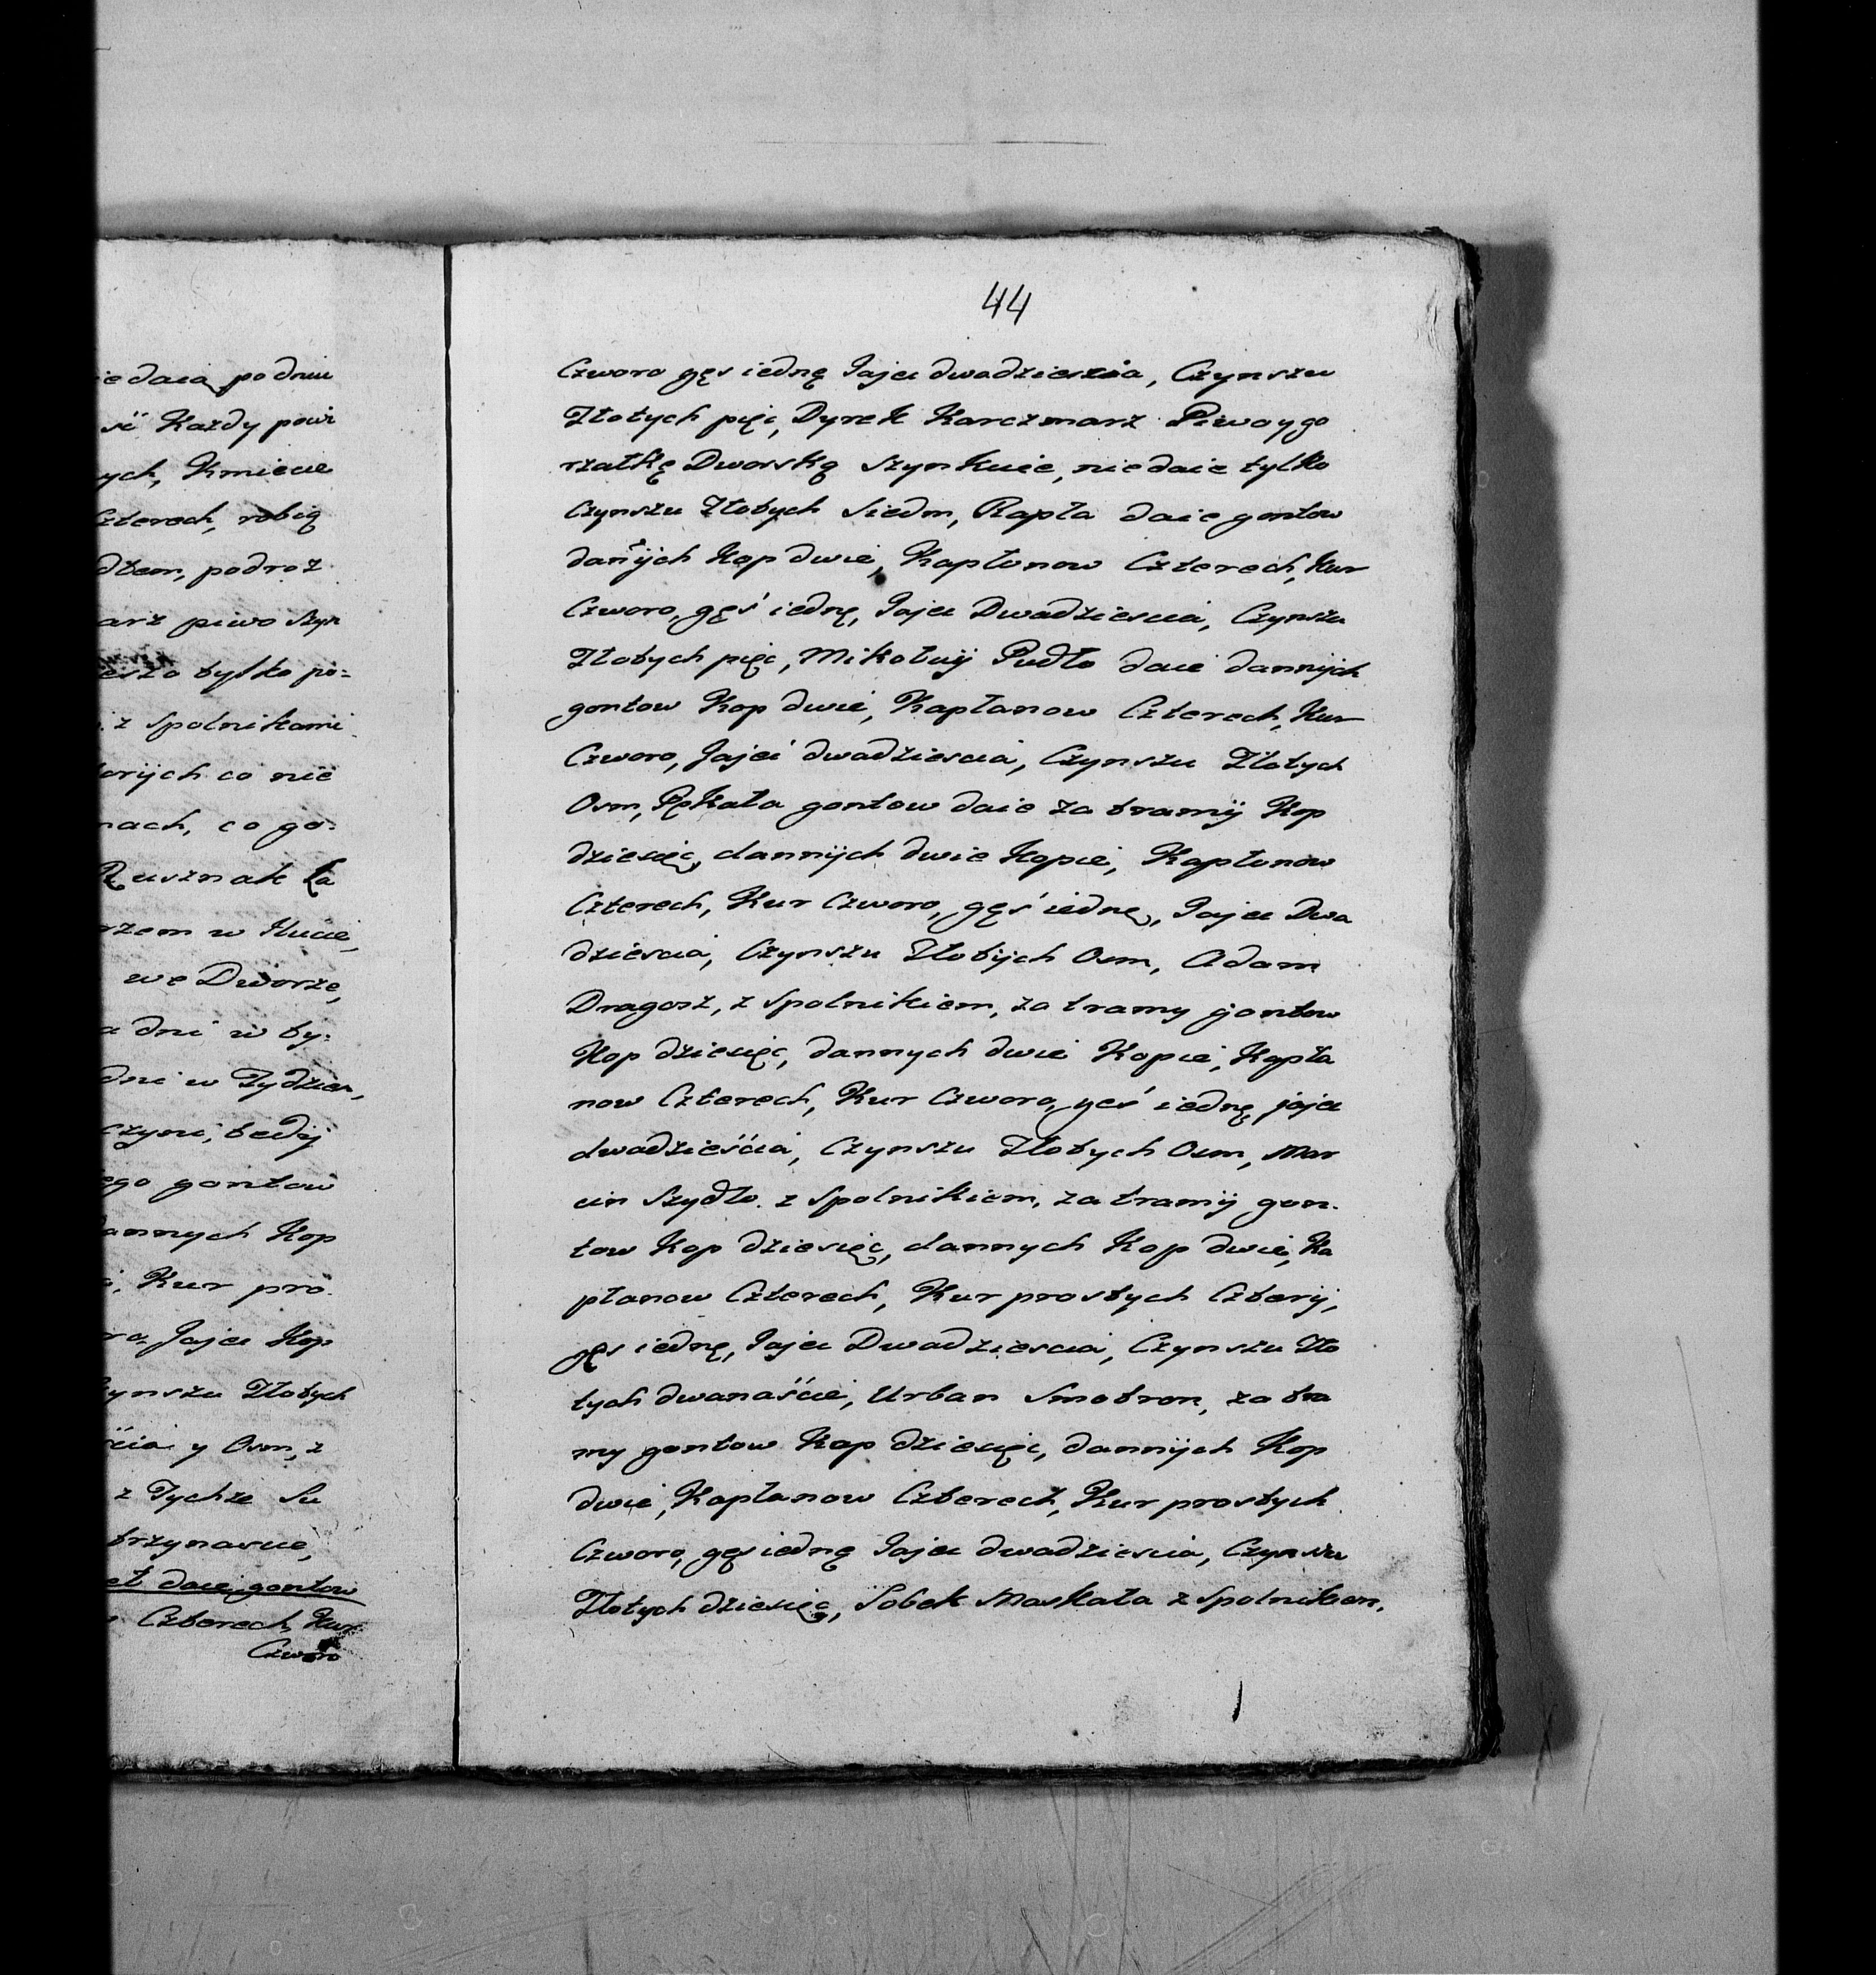 iedaią podniu
si Każdy powi
ych, Kmiecie
Czterech, robią
dłem, podroż
arz piwo Szyn
eszo tylko po=
z Spolnikami
torÿch co nie
nach, co go:
Rusznak ła
rzem w Hucie,
we Dworze,
a dni w ty:
dni w Tydzien,
czyni, tedÿ
ego gontow
dannych Kop
i, Kur pro
ro, Jaja Kop
zynszu Złotych
ścia y Osm, z
z Tychże Su
trzynascie,
et daie gontow
Czterech, Kur
Czworo
44
Czworo gęs iednę Jaja dwadziescia, Czynszu
Złotych pięc, Dyrek Karczmarz Piwo y go
rzałkę Dworską Szynkuie, nie daie tylko
Czynszu Złotych Siedm, Rapła daie gontow
danÿch Kop dwie, Kapłonow Czterech, Kur
Czworo, gęś iednę, Jaja Dwadziescia, Czynszu
Złotych pięc, Mikołaÿ Pudło daie dannÿch
gontow Kop dwie, Kapłanow Czterech, Kur
Czworo, Jaja dwadziescia, Czynszu Złotych
Osm, Rękata gontow daie za tramÿ Kop
dziesięc, dannÿch dwie Kopie, Kapłonow
Czterech, Kur Czworo, gęś iednę, Jaja Dwa
dziescia, Czynszu Złotÿch Osm, Adam
Dragosz, z Spolnikiem, za tramy gontow
Kop dziesięc, dannych dwie Kopie, Kapła
now Czterech, Kur Czworo, gęś iednę jaja
dwadzieścia, Czynszu Złotych Osm, Mar
cin Szydło z Spolnikiem, za tramÿ gon.
tow Kop dziesięc, dannych Kop dwie, Ka
płanow Czterech, Kur prostych Czterÿ,
gęs iednę, Jaja Dwadziescia, Czynszu Zło
tych dwanaście, Urban Smotron, za tra
my gontow Kop dziesięc, dannÿch Kop
dwie, Kapłanow Czterech, Kur prostych
Czworo, gęs iednę Jaja dwadziescia, Czynszu
Złotych dziesięc, Sobek Maskata z Spolnikiem,